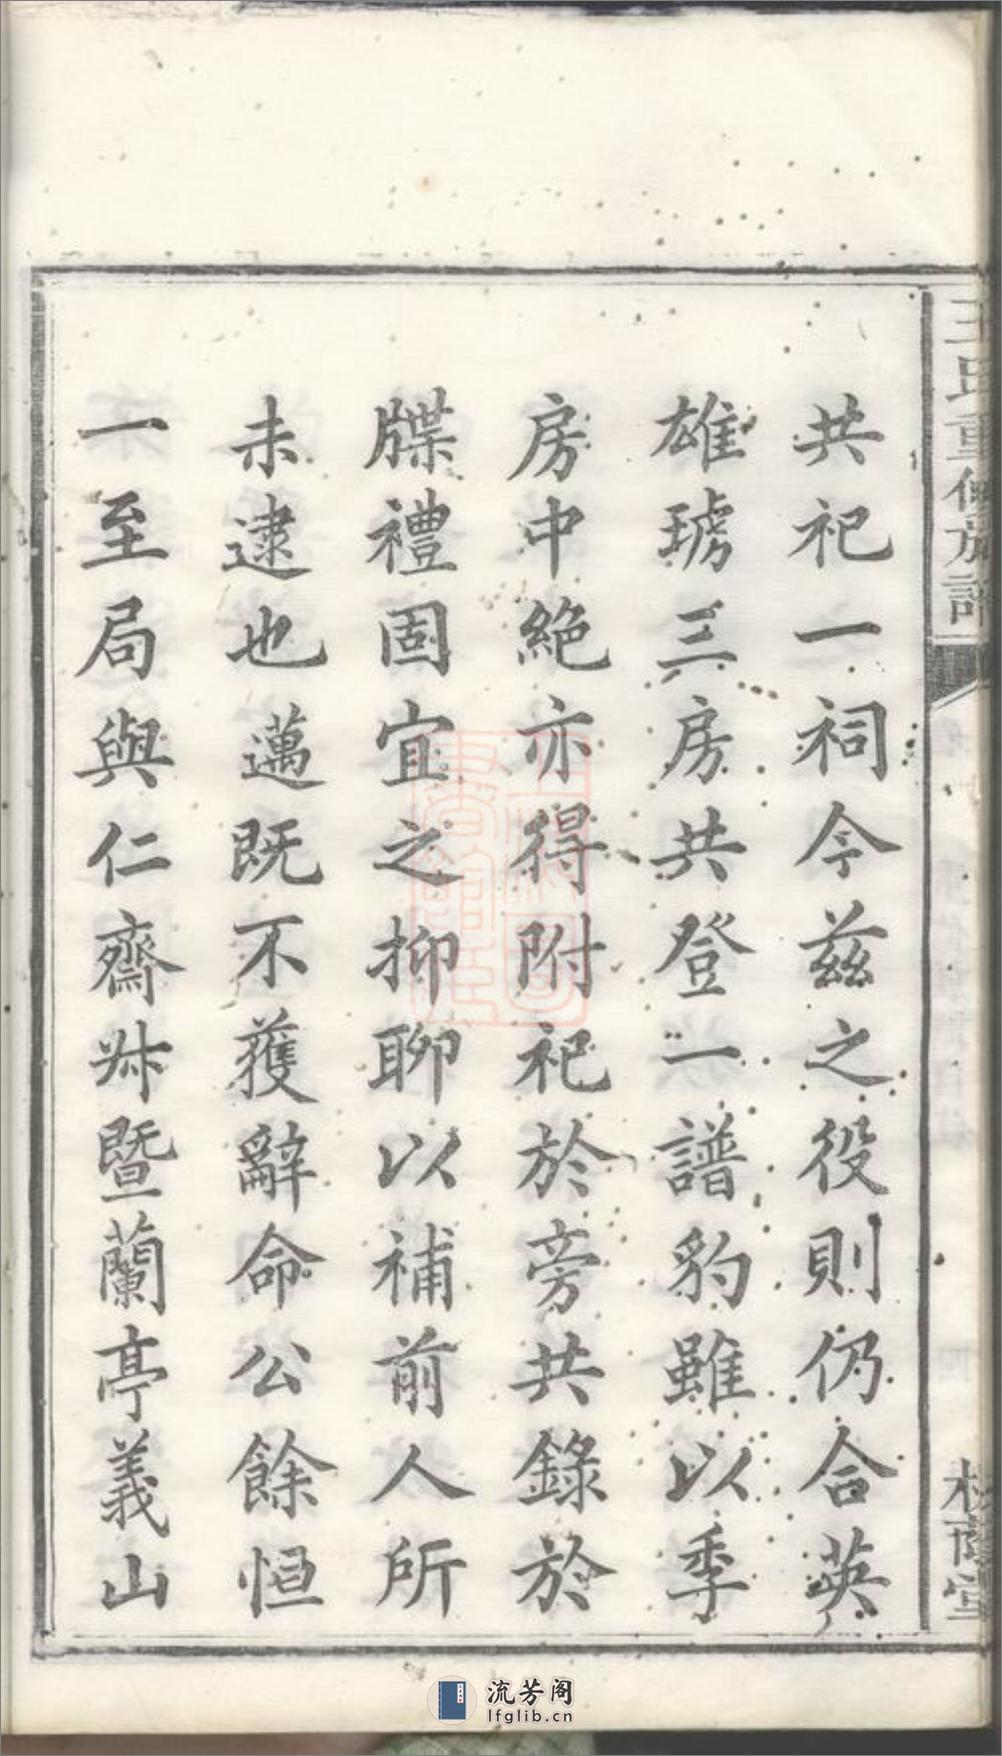 共祀一祠今茲之役則仍合英
雄琇三房共登一譜豹雖以季
房中絕亦得附祀於旁共錄於
牒禮固宜之抑聊以補前人所
未逮也邁既不獲辭命公餘恒
一至局與仁齋叔暨蘭亭義山
王氏重修族譜
堂
流芳阁
lfglib.cn